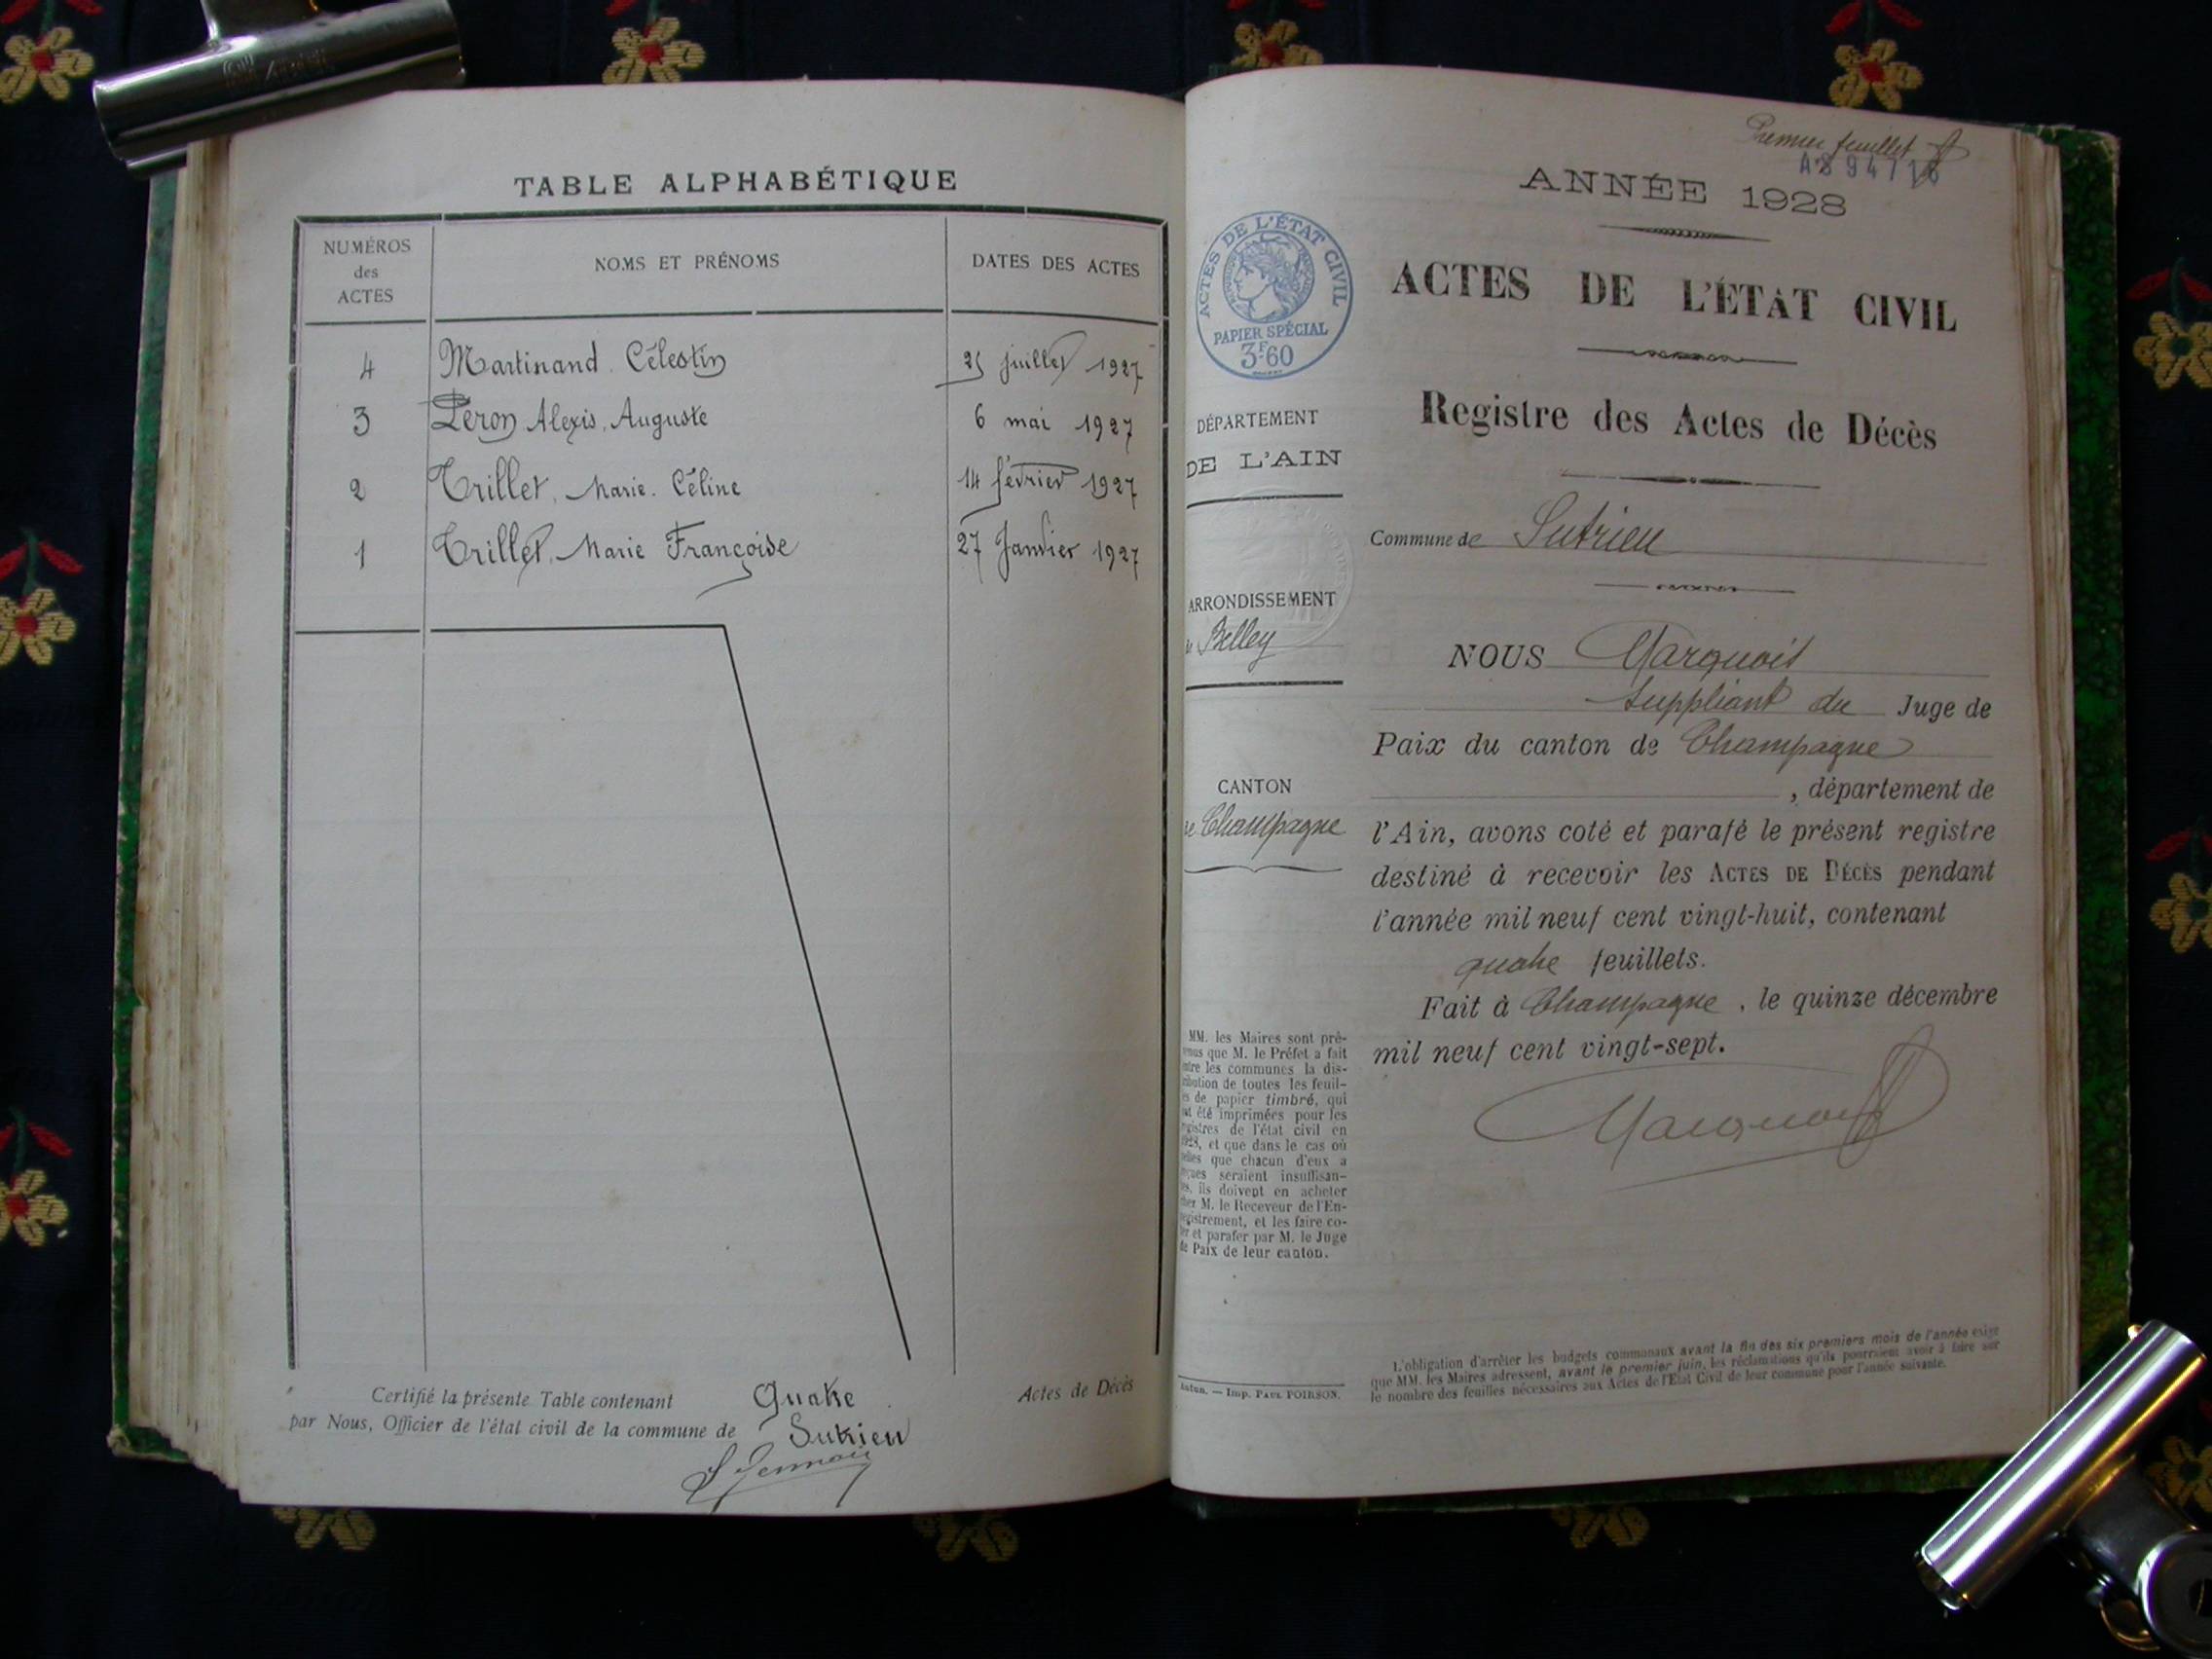 TABLE ALPHABÉTIQUE
NUMÉROS
des
ACTES
NOMS ET PRÉNOMS
DATES DES ACTES
4 Martinand Célestin 25 juillet 1927
3 Peron Alexis, Auguste 6 mai 1927
2 Trillet, Marie. Céline 14 février 1927
1 Trillet, Marie Françoise 27 Janvier 1927
Certifié la présente Table contenant Quatre Actes de Décès
par Nous, Officier de l'état civil de la commune de Sutrieu
Premier feuillet
ANNÉE 1928
ACTES DE L'ÉTAT CIVIL
PAPIER SPÉCIAL
3F60
ACTES DE L'ÉTAT CIVIL
Registre des Actes de Décès
DÉPARTEMENT
DE L'AIN
Commune de Sutrieu
ARRONDISSEMENT
de Belley
CANTON
de Champagne
NOUS Marquois
Suppléant du Juge de
Paix du canton de Champagne
, département de
l'Ain, avons coté et parafé le présent registre
destiné à recevoir les ACTES DE DÉCÈS pendant
l'année mil neuf cent vingt-huit, contenant
quatre feuillets.
Fait à Champagne, le quinze décembre
mil neuf cent vingt-sept.
MM. les Maires sont pré-
venus que M. le Préfet a fait
entre les communes la dis-
tribution de toutes les feuil-
les de papier timbré, qui
ont été imprimées pour les
registres de l'état civil en
1928, et que dans le cas où
celles que chacun d'eux a
reçues seraient insuffisan-
tes, ils doivent en acheter
chez M. le Receveur de l'En-
registrement, et les faire co-
ter et parafer par M. le Juge
de Paix de leur canton.
Autun. — Imp. PAUL POIRSON.
L'obligation d'arrêter les budgets communaux avant la fin des six premiers mois de l'année exige
que MM. les Maires adressent, avant le premier juin, les réclamations qu'ils pourraient avoir à faire sur
le nombre des feuilles nécessaires aux Actes de l'État Civil de leur commune pour l'année suivante.